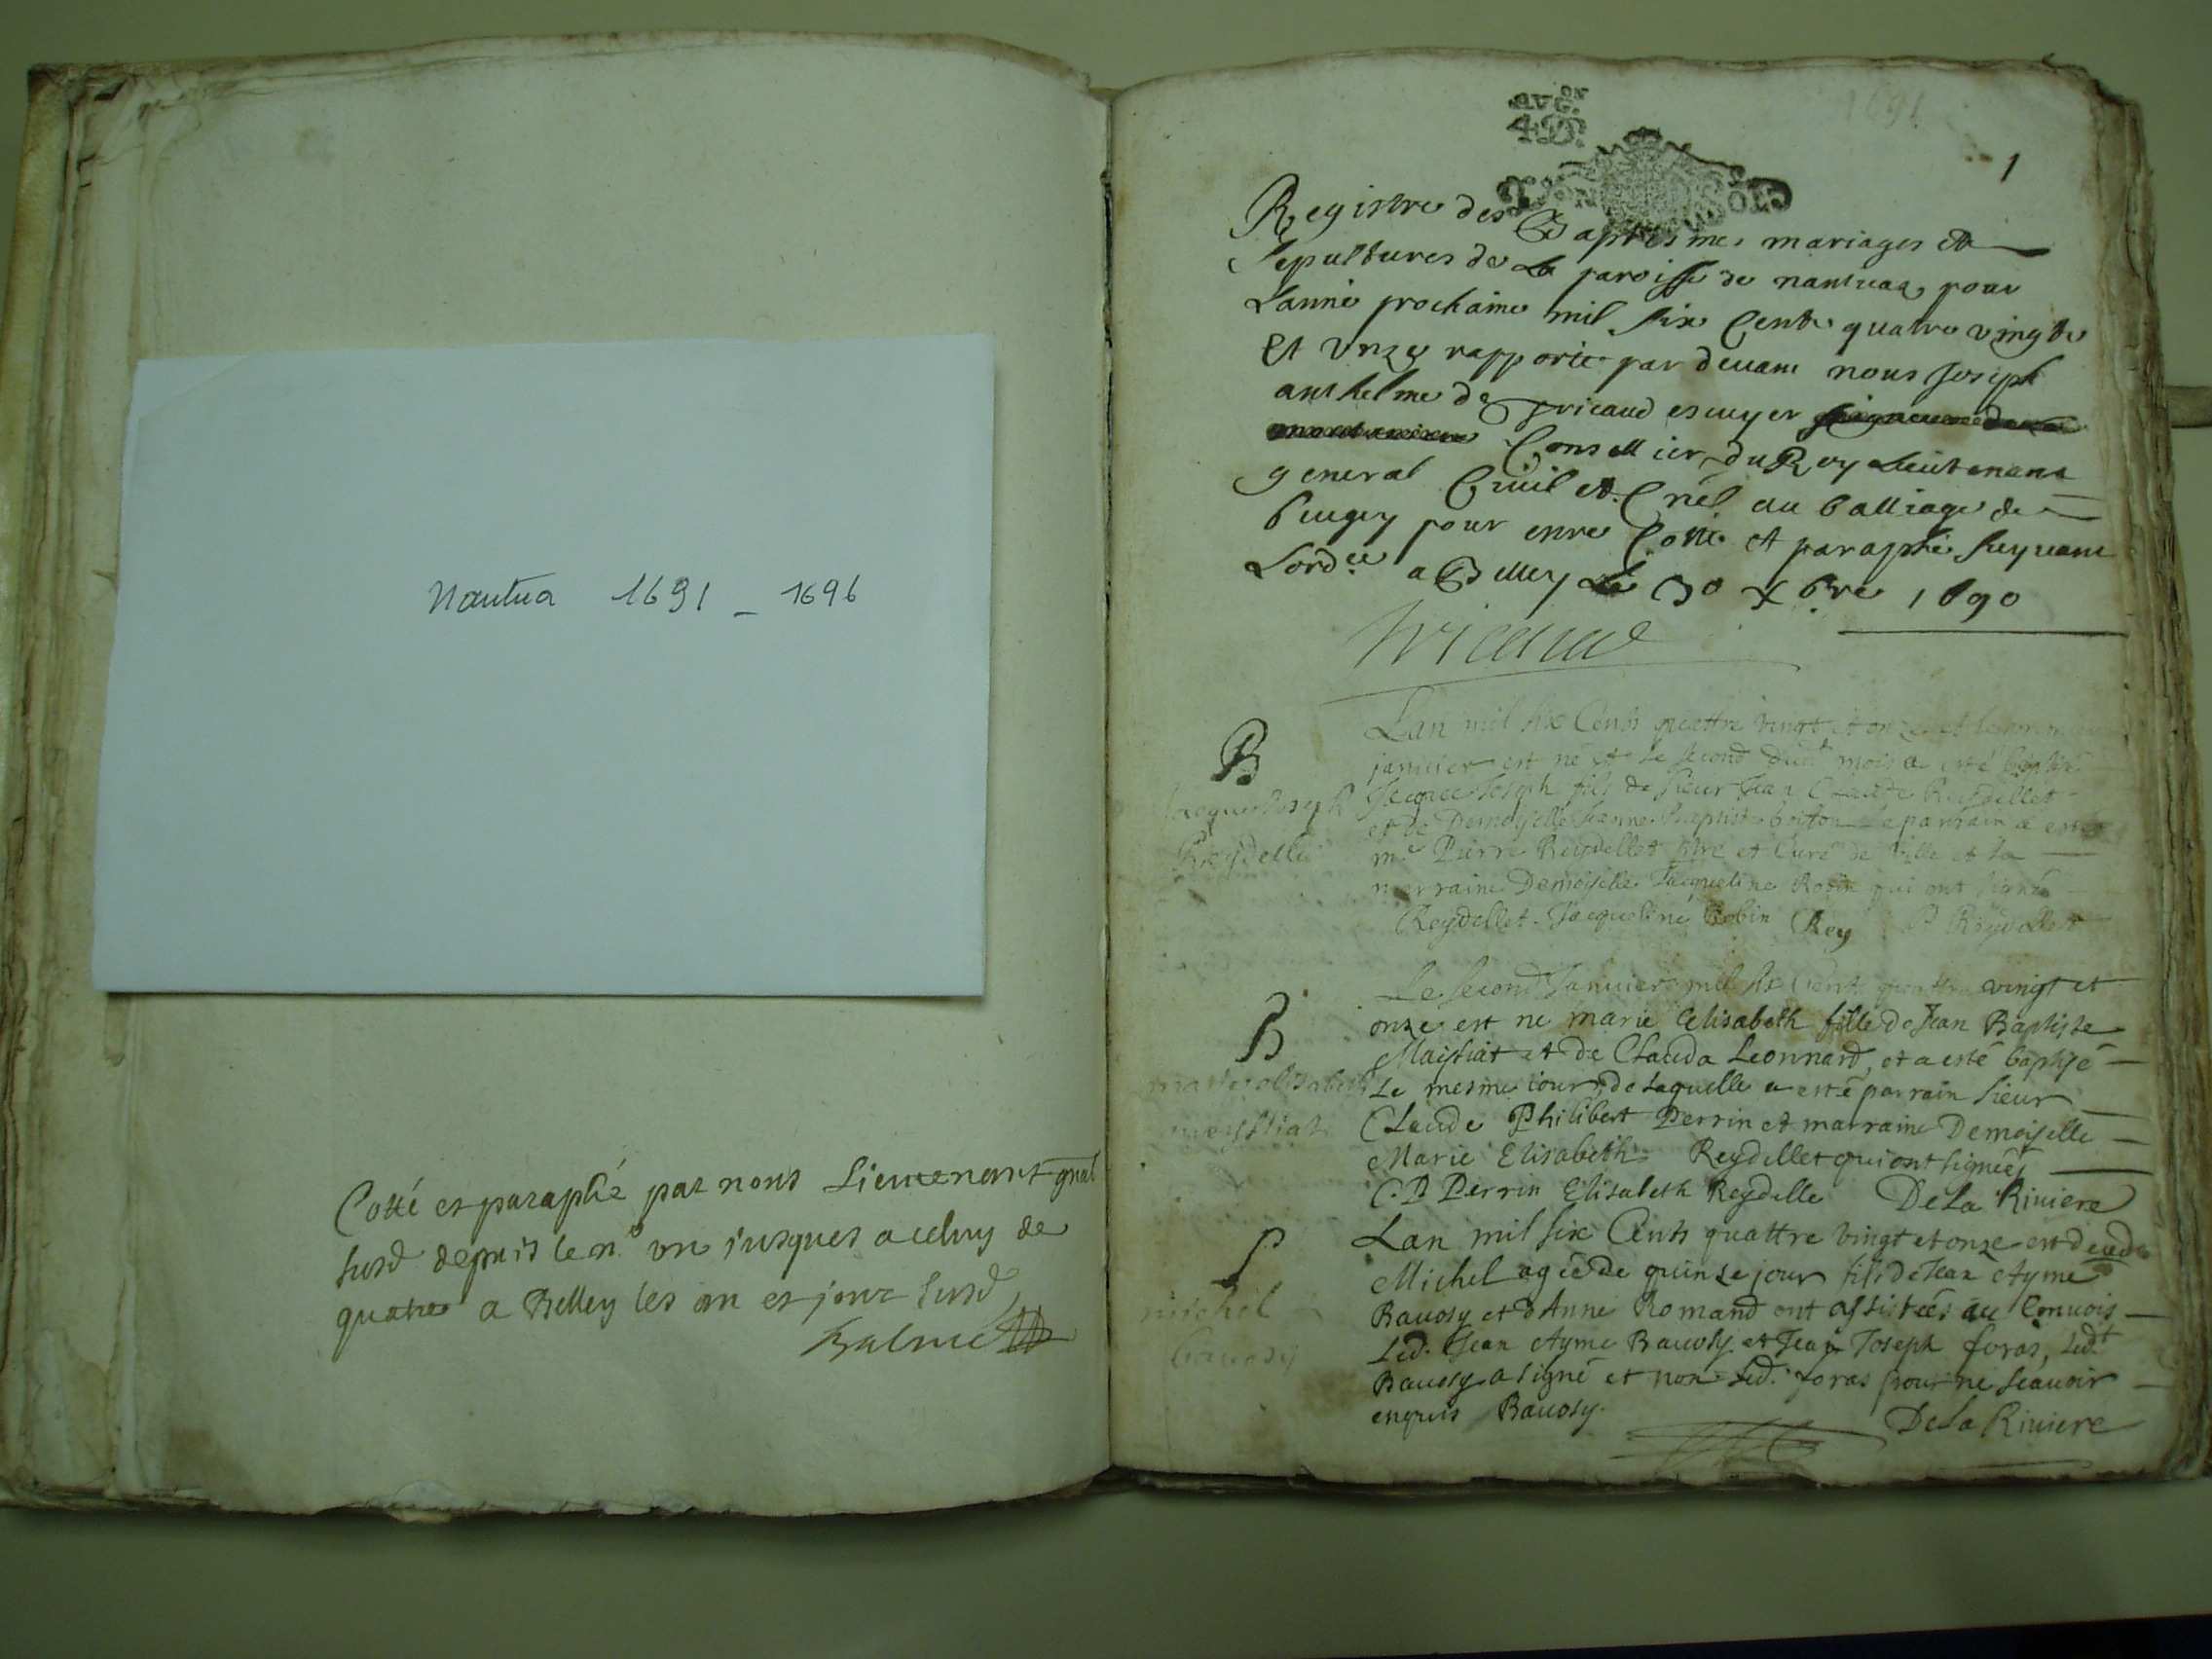 Nantua 1691 - 1696
Cotté et paraphé par nous Lieutenant gnal
susd depuis le n.o un jusques a celuy de
quatre a Belley les an et jour susd
avg.on
4 D.
1691
1
Registre des Baptesmes mariages et
sepultures de La paroisse de nantuaz pour
Lanné prochaine mil six Cents quatre vingts
et unze rapporté par devant nous Joseph
anthelme de tricaud escuyer
Conseiller du Roy Lieutenant
general Civil et Cnel au balliage de
beugey pour estre Cotté et paraphé suyvant
Lord.ce a Belley Le 30 Xbre 1690
Tricaud
B
Jacque Joseph
Reydellet
Lan mil six Cents quattre vingt et onze et
janvier est né et le second dud.t mois a esté baptisé
Jacque Joseph fils de sieur Jean Claude Reydellet
et de Demoyselle Jeanne Baptiste le parrain a esté
m.e Pierre Reydellet ptre et Curé de ville et la
marraine Demoiselle Jacqueline Robin qui ont signés
Reydellet. Jacqueline Robin Rey P Reydellet
B
marie elisabeth
meysttiat
Le second Janvier mil six Cents quattre vingt et
onze est ne marie elisabeth fille de Jean Baptiste
Maistiat et de Clauda Leonnard, et a esté baptisé
Le mesme iour, de Laquelle a esté parrain sieur
Claude Philibert Perrin et marraine Demoiselle
Marie Elisabeth Reydellet qui ont signéés
C. P Perrin Elisabeth Reydelle De La Riviere
S
michel
bavosy
Lan mil six Cents quattre vingt et onze est decede
Michel agée de quinze jour fils de Jean Ayme
Bavosy et dAnne Romand ont assistéés au Convois
Led. Jean Ayme Bavosy. et Jean Joseph foras, Led.t
Bavosy a signé et non Led. foras pour ne scavoir
enquis Bavosy.
De La Riviere